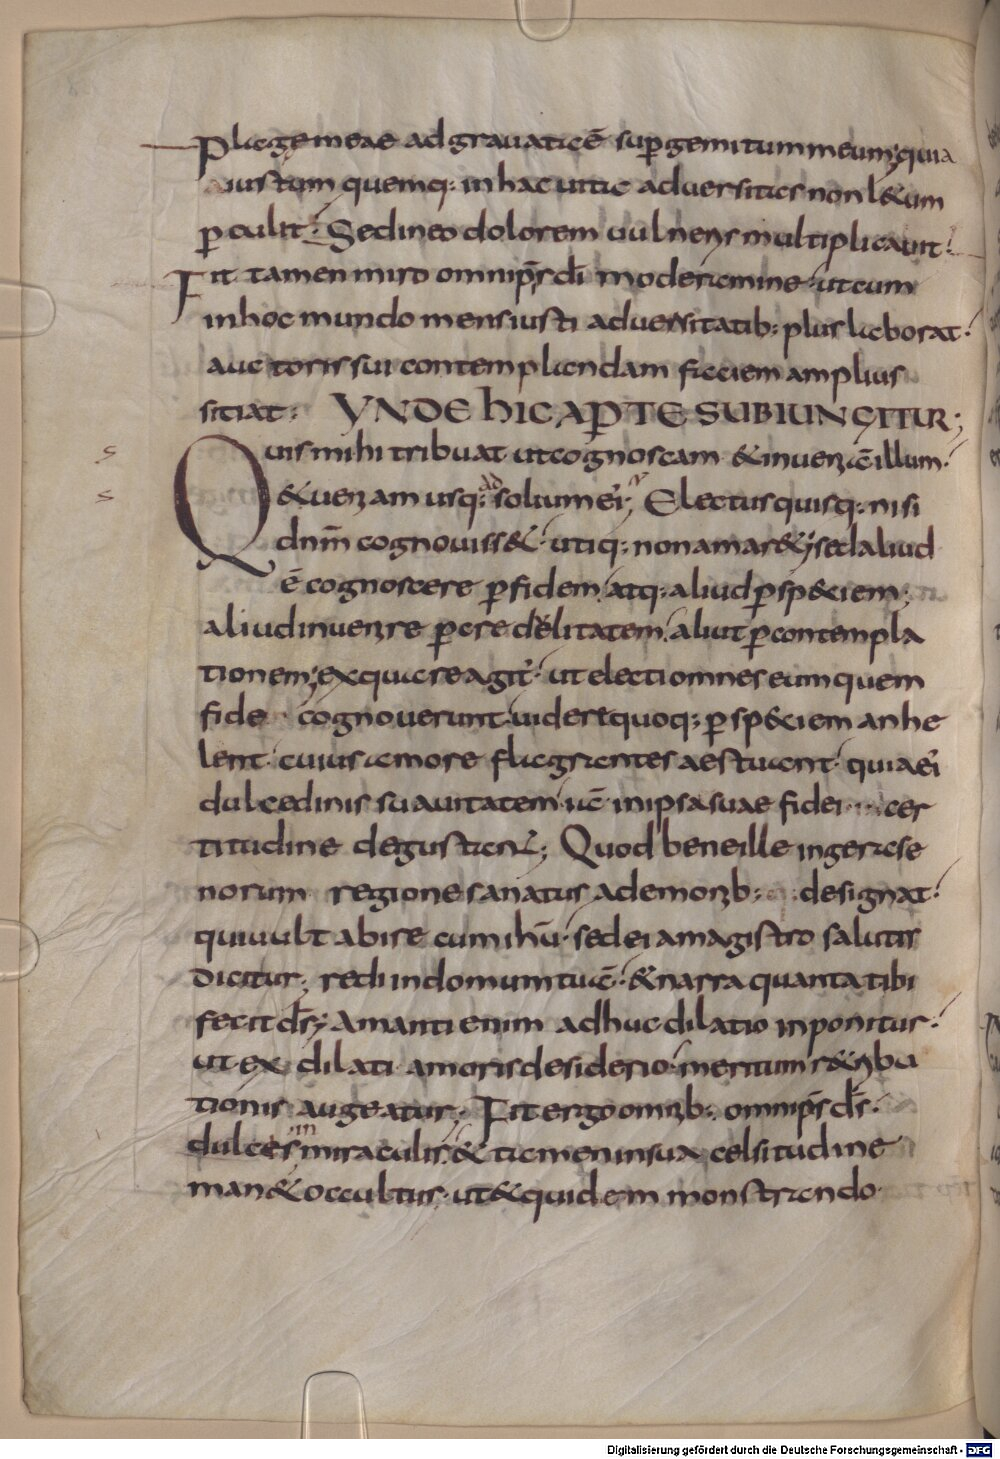 plagę meae adgrauata ē sup̄ gemitum meum; quia
iustum quemq: inhac uita aduersitas non l&um
p̄culit; Sed in eo dolorem uulneris multiplicauit.
Fit tamen miro omnip̄s dī moderamine. ut cum
in hoc mundo mens iusti aduersitatib: plus laborat.
auctoris sui contemplandam faciem amplius
sitiat; VNDE hIC APTE SUBIUNGITUR;
Quis mihi tribuat ut cognoscam & inueniā illum.
& ueniam usq: ad solium ei; Electus quisq: nisi
dnm̄ cognouiss&. utiq: non amar&; sed aliud
ē cognoscere p̄ fidem. atq: aliud p̄ sp&ciem;
aliud inuenire p̄ credelitatem. aliut p̄ contempla
tionem; ex qua re agit. ut electi omnes eum quem
fide cognouerunt. uidere quoq: p̄ sp&ciem anhe
lent. cuius amore flagrantes aestuant. quia ei
dulcedinis suauitatem iā in ipsa suae fidei cer
titudine degustant; Quod bene ille in gerase
norum regione sanatus a demonib: designat.
qui uult abire cum ihū. sed ei a magistro salutis
dicitur; redi in domum tuā. & narra quanta tibi
fecit ds̄; Amanti enim adhuc dilatio inponitur.
ut ex dilati amoris desiderio. meritum r&ribu
tionis augeatur; Fit ergo omnib: omnip̄s ds̄.
dulces in miraculis. & tamen in sua celsitudine
man& occultus. ut & quidem monstrando
Digitalisierung gefördert durch die Deutsche Forschungsgemeinschaft - DFG